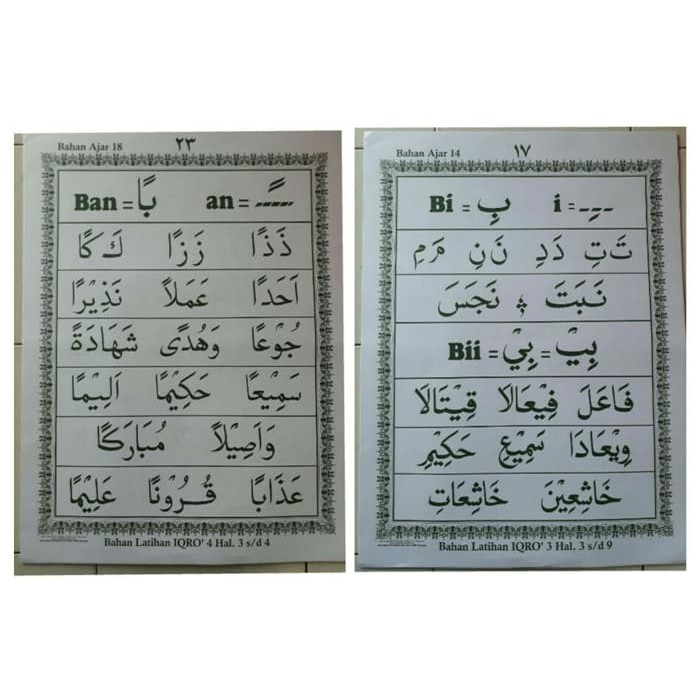 Bahan Ajar 18 ٢٣
Ban = بًا an = ـًـ
ذَذًا زَزًا كَ كًا
اَحَدًا عَمَلاً نَذِيْرًا
جُوْعًا وَهُدًى شَهَادَةً
سَمِيْعًا حَكِيْمًا اَلِيْمًا
وَاَصِيْلاً مُبَارَكًا
عَذَابًا قُرُوْنًا عَلِيْمًا
Bahan Latihan IQRO' 4 Hal. 3 s/d 4
Bahan Ajar 14 ١٧
Bi = بِ i = ـِـ
تَ تِ دَ دِ نَ نِ مَ مِ
نَبَتَ نَجَسَ
Bii = بِيْ = بِيْ
فَاعَلَ فِيْعَالَا قِيْتَالَا
وِيْعَادَا سَمِيْعِ حَكِيْمِ
خَاشِعِيْنَ خَاشِعَاتِ
Bahan Latihan IQRO' 3 Hal. 3 s/d 9